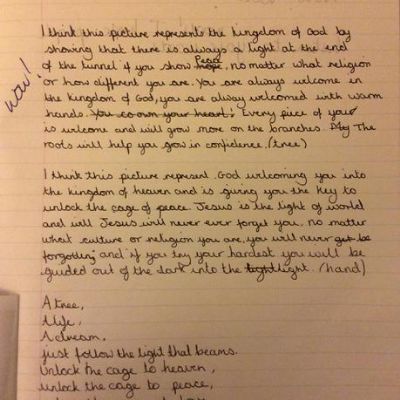 I think this picture represents the kingdom of God by
showing that there is always a light at the end
of the tunnel if you show Peace, no matter what religion
or how different you are. You are always welcome in
the kingdom of God, you are alway welcomed with warm
hands. Every piece of you
is welcome and will grow more on the branches. The
roots will help you grow in confidence. (tree)
wow!
I think this picture represent God welcoming you into
the kingdom of heaven and is giving you the key to
unlock the cage of peace. Jesus is the light of world
and will Jesus will never ever forget you, no matter
what culture or religion you are, you will never be
forgotten, and if you try your hardest you will be
guided out of the dark into the light. (hand)
A tree,
A life,
A dream,
just follow the light that beams.
Unlock the cage to heaven,
unlock the cage to peace,